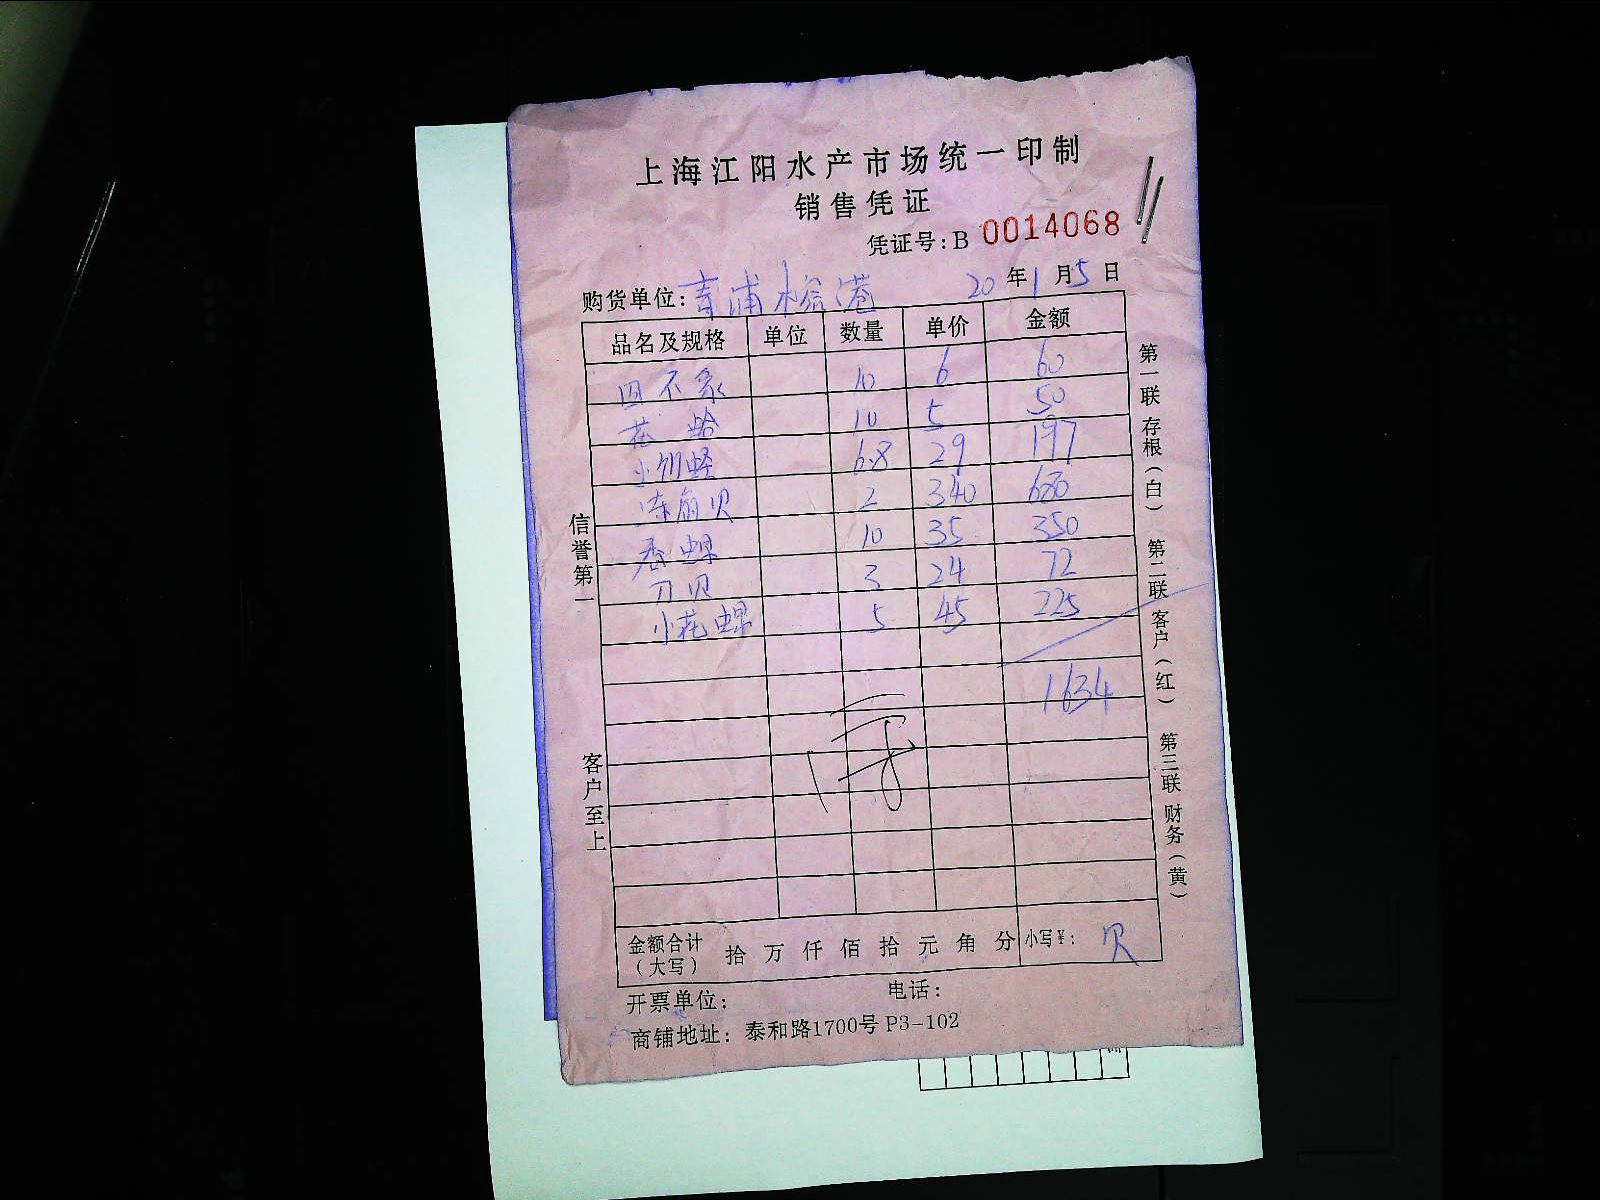 上海江阳水产市场统一印制
销售凭证
凭证号:B 0014068
购货单位:青浦榕港 20年1月5日
品名及规格 单位 数量 单价 金额
四不象 10 6 60
花蛤 10 5 50
小钢蛏 6.8 29 197
冻扇贝 2 340 680
香螺 10 35 350
刀贝 3 24 72
小花螺 5 45 225
1634
金额合计(大写) 拾 万 仟 佰 拾 元 角 分 小写¥: 贝
开票单位: 电话:
商铺地址: 泰和路1700号 P3-102
信誉第一
客户至上
第一联 存根(白) 第二联 客户(红) 第三联 财务(黄)